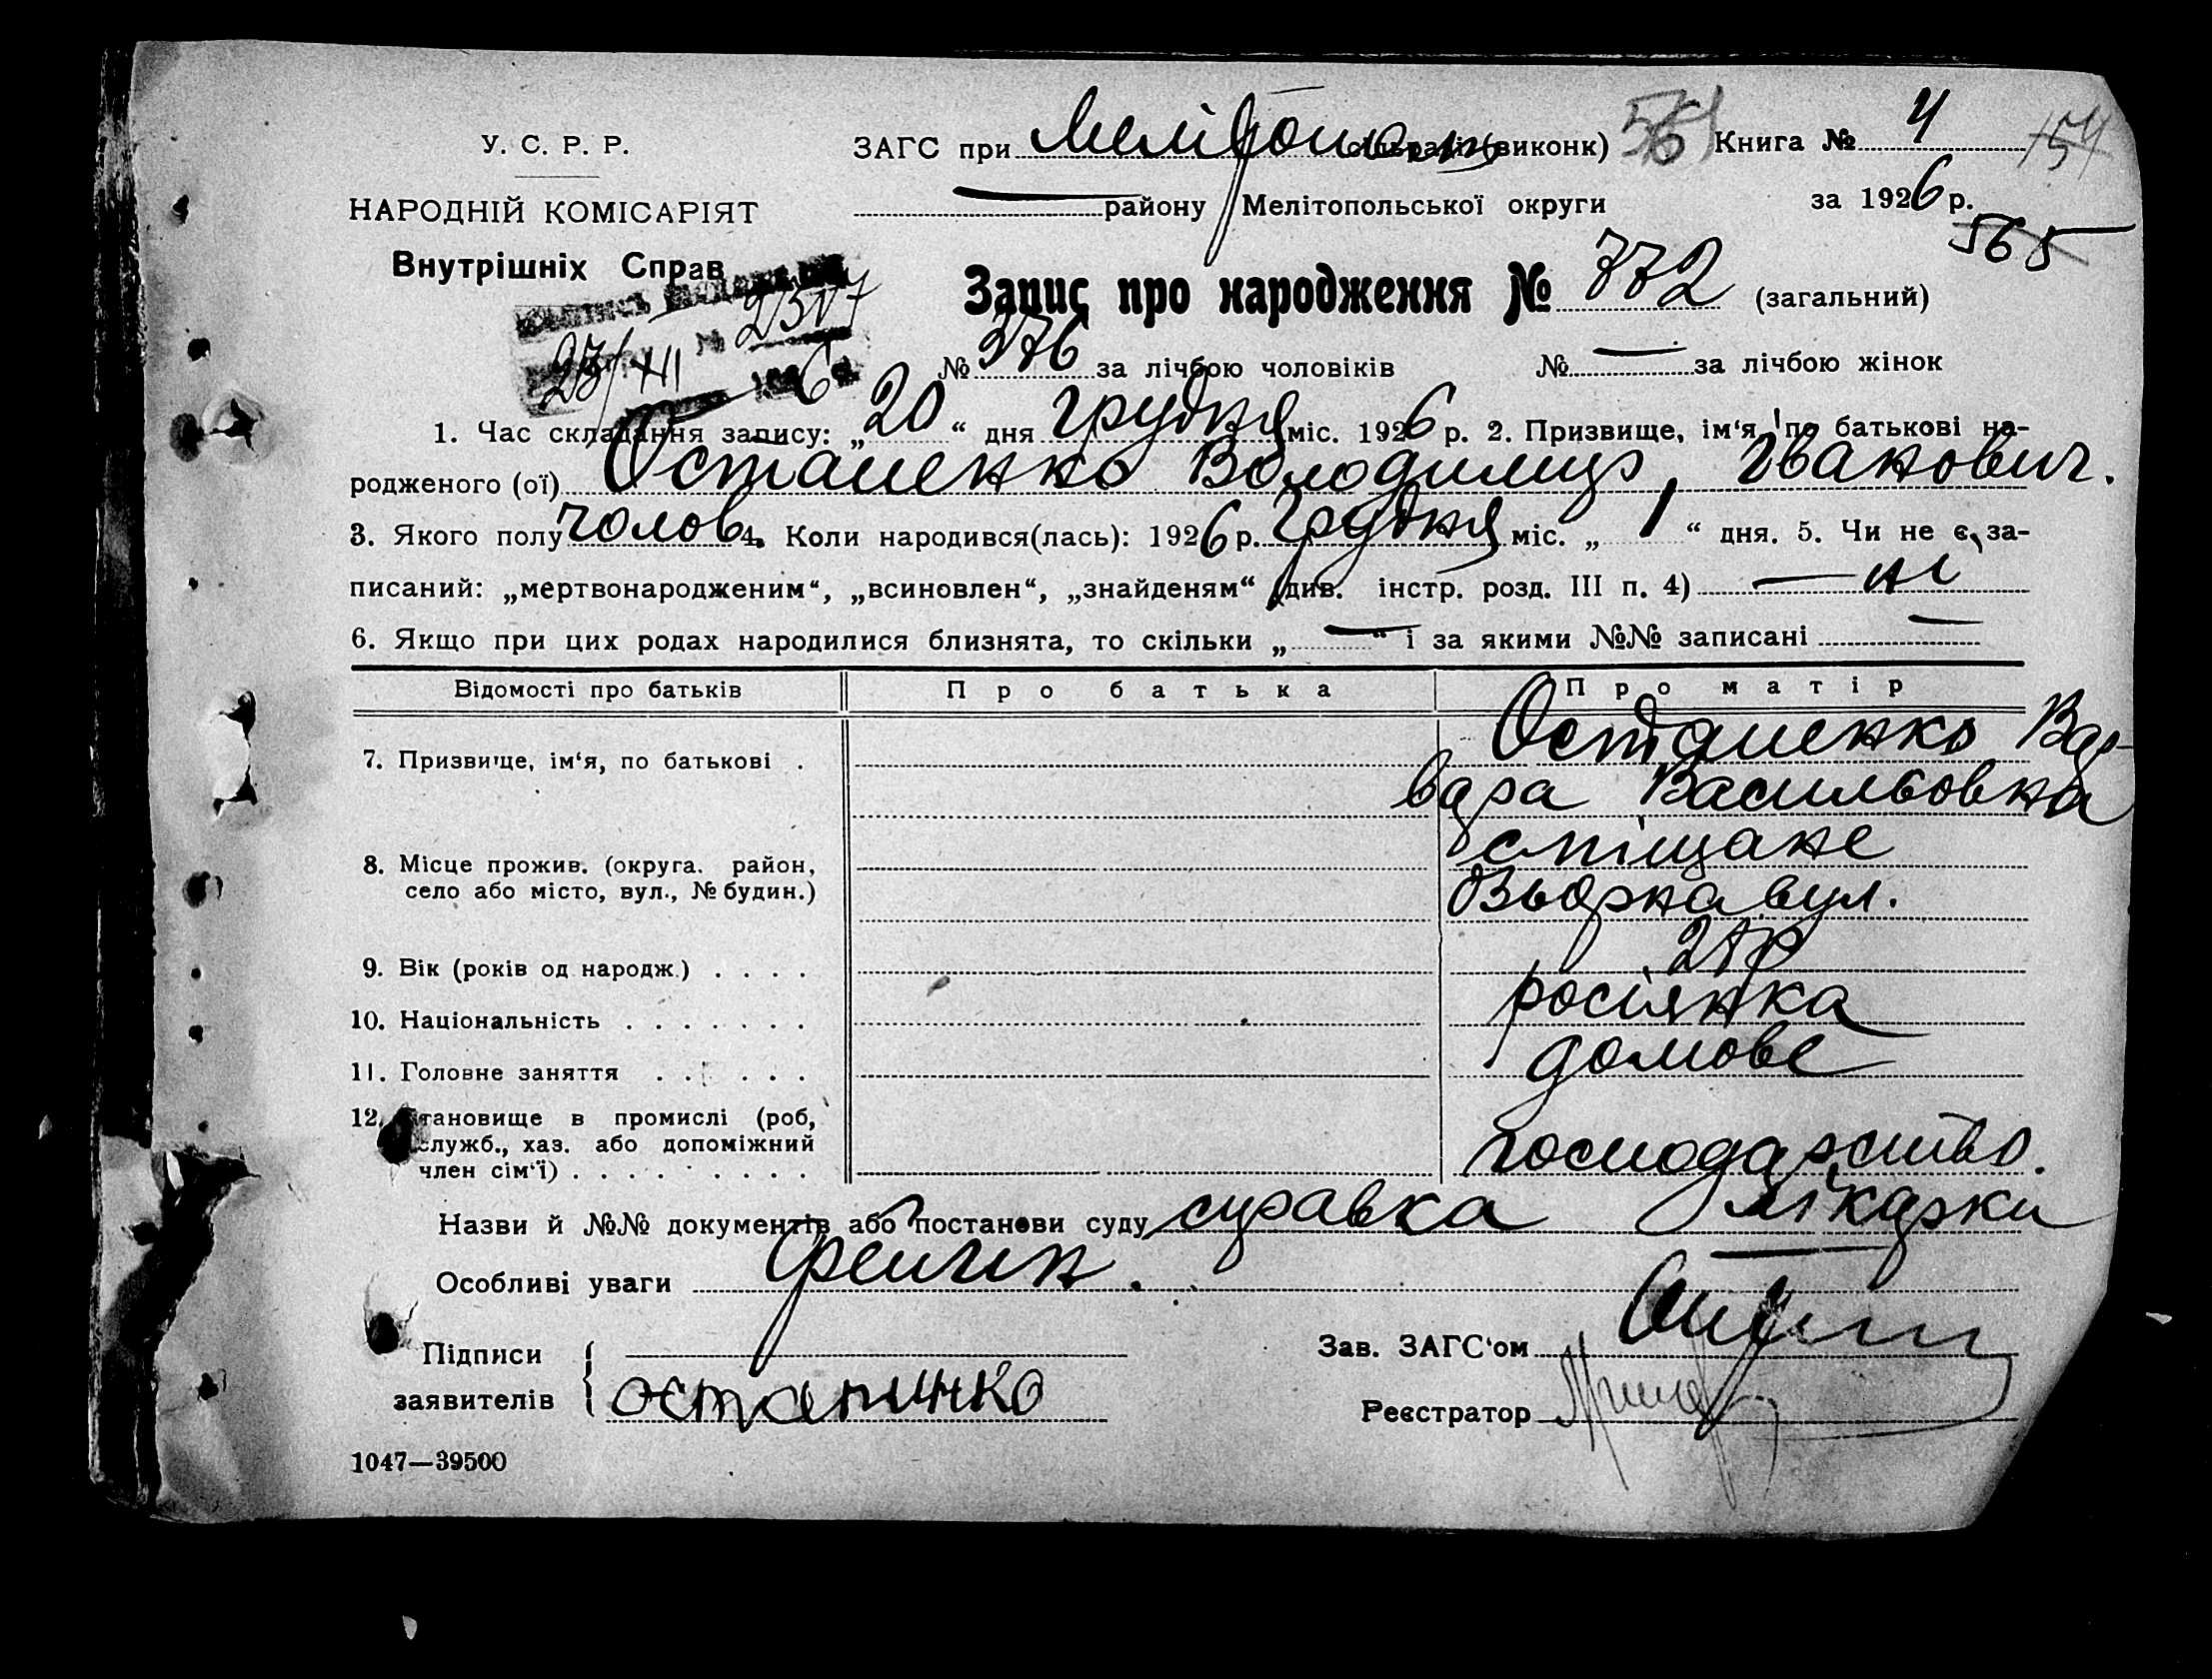 У. С. Р. Р.
ЗАГС при Мелітопол. (виконк) 561 Книга № 4
НАРОДНІЙ КОМІСАРІЯТ
району Мелітопольської округи за 1926 р.
565
Внутрішніх Справ
Запис про народження № 772 (загальний)
23/XII 6
№ 376 за лічбою чоловіків № — за лічбою жінок
1. Час складання запису: „20“ дня грудня міс. 1926 р. 2. Призвище, ім‘я, по батькові на-
родженого (ої) Остапенко Володимир Іванович.
3. Якого полу чолов. 4. Коли народився(лась): 1926 р. грудня міс. „1“ дня. 5. Чи не є за-
писаний: „мертвонародженим“, „всиновлен“, „знайденям“ (див. інстр. розд. III п. 4) — ні
6. Якщо при цих родах народилися близнята, то скільки „—“ і за якими №№ записані —
Відомості про батьків Про батька Про матір
7. Призвище, ім‘я, по батькові . Остапенко Вар-
вара Васильовна
8. Місце прожив. (округа. район, село або місто, вул., № будин.) міщане
вул.
9. Вік (років од народж.) . . . .
10. Національність . . . . . . . росіянка
11. Головне заняття . . . . . . домове
12. Становище в промислі (роб, служб., хаз. або допоміжний член сім‘ї) . . . . . . . . . господарство.
Назви й №№ документів або постанови суду справка лікарки
Особливі уваги Фейгин.
Підписи
заявителів остапинко
Зав. ЗАГС‘ом
Реєстратор
1047—39500